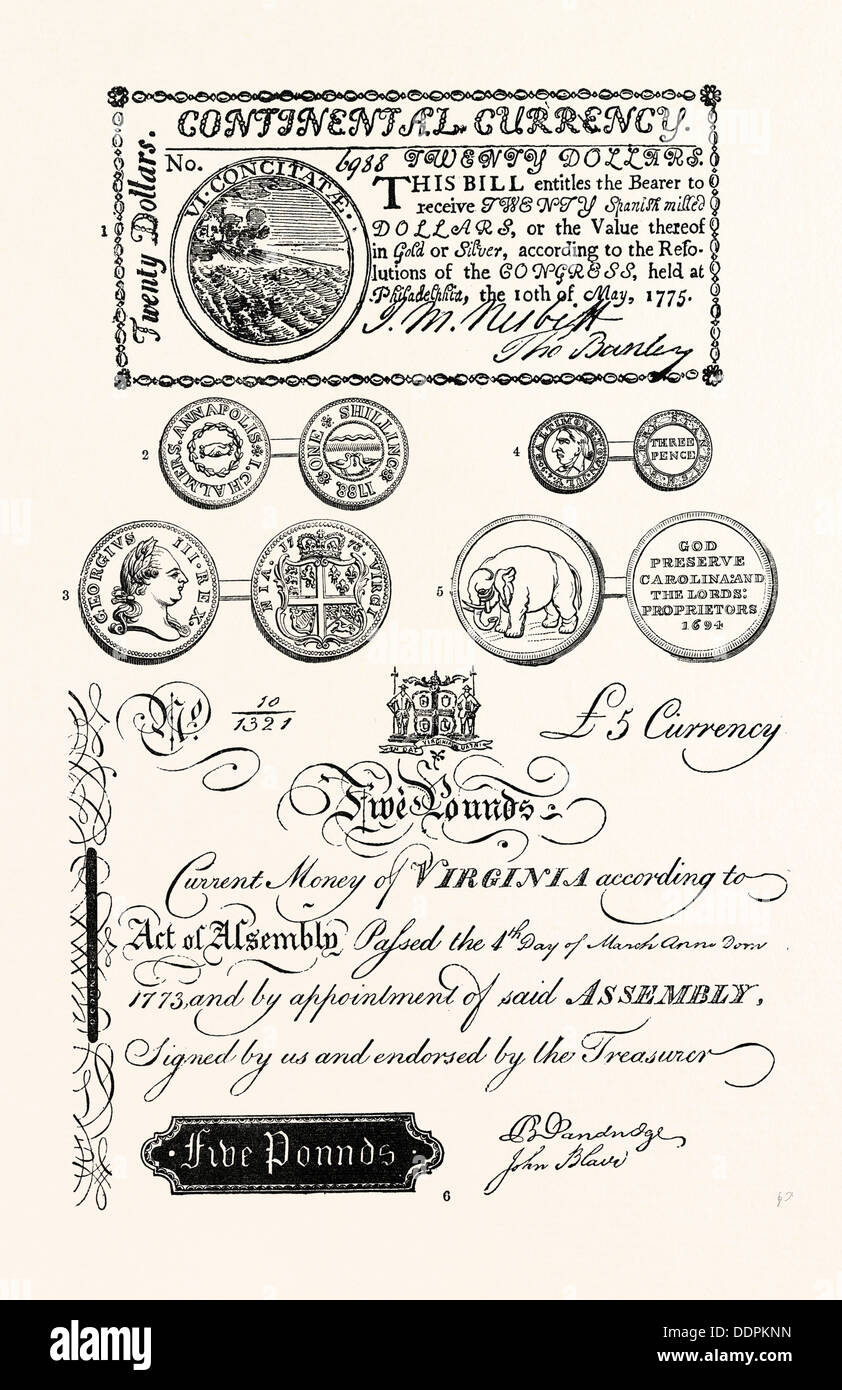 CONTINENTAL CURRENCY.
Twenty Dollars.
No. 6988 TWENTY DOLLARS.
VI·CONCITATÆ.
THIS BILL entitles the Bearer to
receive TWENTY Spanish milled
DOLLARS, or the Value thereof
in Gold or Silver, according to the Reso-
lutions of the CONGRESS, held at
Philadelphia, the 10th of May, 1775.
J. M. Nesbitt
Tho Barclay
1
2
I.CHALMERS.ANNAPOLIS
ONE SHILLING 1788
4
THREE
PENCE
3
GEORGIVS III·REX
17 73· VIRGI NIA·
5
GOD
PRESERVE
CAROLINA:AND
THE LORDS:
PROPRIETORS
1694
No. 10
1321
£5 Currency
EN DAT VIRGINIA
Five Pounds
Current Money of VIRGINIA according to
Act of Assembly Passed the 4th Day of March Anno Dom
1773, and by appointment of said ASSEMBLY,
Signed by us and endorsed by the Treasurer
Five Pounds
John Blair
6
alamy
Image ID: DDPKNN
www.alamy.com